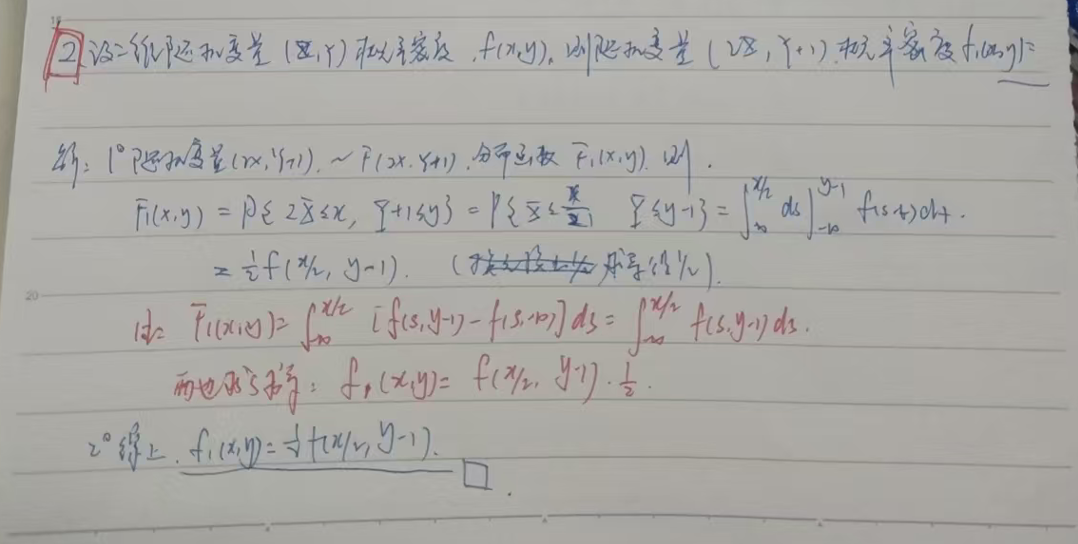 2 设二维随机变量 (X,Y) 概率密度 f(x,y), 则随机变量 (2X, Y+1) 概率密度 f₁(x,y)=
解: 1° 随机变量(2X,Y+1) ~ F(2X,Y+1). 分布函数 F₁(x,y). 则.
F₁(x,y) = P{ 2X≤x, Y+1≤y} = P{X≤x/2, Y≤y-1} = ∫_{-∞}^{x/2} ds∫_{-∞}^{y-1} f(s,t)dt.
= ½f(x/2, y-1). ( 求导得1/2).
20
F₁(x,y)= ∫_{-∞}^{x/2} [f(s,y-1)-f(s,-∞)]ds = ∫_{-∞}^{x/2} f(s,y-1)ds.
求导: f₁(x,y)= f(x/2, y-1)·½.
2° 综上. f₁(x,y)=½f(x/2, y-1). □.